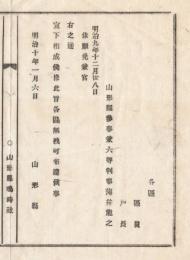 各區
區長
戶長
山形縣參事兼六等判事薄井龍之
明治九年十二月廿八日
依願免兼官
右之通
宣下相成候條此旨各區無洩可布達候事
明治十年一月六日
山形縣
○山形縣鳴時社